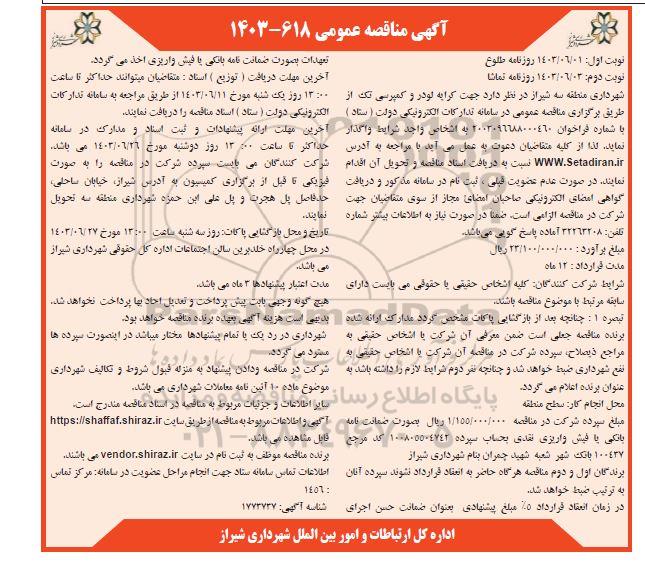 آگهی مناقصه عمومی ۶۱۸-۱۴۰۳
نوبت اول: ۱۴۰۳/۰۶/۰۱ روزنامه طلوع
نوبت دوم: ۱۴۰۳/۰۶/۰۳ روزنامه تماشا
شهرداری منطقه سه شیراز در نظر دارد جهت کرایه لودر و کمپرسی تک از
طریق برگزاری مناقصه عمومی در سامانه تدارکات الکترونیکی دولت ( ستاد )
با شماره فراخوان ۲۰۰۳۰۹۶۶۸۸۰۰۰۴۶۰ به اشخاص واجد شرایط واگذار
نماید. لذا از کلیه متقاضیان دعوت به عمل می آید با مراجعه به آدرس
WWW.Setadiran.ir نسبت به دریافت اسناد مناقصه و تحویل آن اقدام
نمایند. در صورت عدم عضویت قبلی ، ثبت نام در سامانه مذکور و دریافت
گواهی امضای الکترونیکی صاحبان امضائ مجاز از سوی متقاضیان جهت
شرکت در مناقصه الزامی است. ضمنا در صورت نیاز به اطلاعات بیشتر شماره
تلفن: ۳۲۲۶۳۲۰۸ آماده پاسخ گویی می‌باشد.
مبلغ برآورد : ۲۳/۱۰۰/۰۰۰/۰۰۰ ریال
مدت قرارداد : ۱۲ ماه
شرایط شرکت کنندگان: کلیه اشخاص حقیقی یا حقوقی می بایست دارای
سابقه مرتبط با موضوع مناقصه باشند.
تبصره ۱ : چنانچه بعد از بازگشایی پاکات مشخص گردد مدارک ارائه شده
برنده مناقصه جعلی است ضمن معرفی آن شرکت یا اشخاص حقیقی به
مراجع ذیصلاح، سپرده شرکت در مناقصه آن شرکت یا اشخاص حقیقی به
نفع شهرداری ضبط خواهد شد و چنانچه نفر دوم شرایط لازم را داشته باشد به
عنوان برنده اعلام می گردد.
محل انجام کار: سطح منطقه
مبلغ سپرده شرکت در مناقصه ۱/۱۵۵/۰۰۰/۰۰۰ ریال بصورت ضمانت نامه
بانکی یا فیش واریزی نقدی بحساب سپرده ۱۰۰۸۰۵۵۰۴۷۴۲ کد مرجع
۱۰۰۴۳۷ بانک شهر شعبه شهید چمران بنام شهرداری شیراز
برندگان اول و دوم مناقصه هرگاه حاضر به انعقاد قرارداد نشوند سپرده آنان
به ترتیب ضبط خواهد شد.
در زمان انعقاد قرارداد ۵٪ مبلغ پیشنهادی بعنوان ضمانت حسن اجرای
تعهدات بصورت ضمانت نامه بانکی یا فیش واریزی اخذ می گردد.
آخرین مهلت دریافت ( توزیع ) اسناد : متقاضیان میتوانند حداکثر تا ساعت
۱۳:۰۰ روز یک شنبه مورخ ۱۴۰۳/۰۶/۱۱ از طریق مراجعه به سامانه تدارکات
الکترونیکی دولت ( ستاد ) اسناد مناقصه را دریافت نمایند.
آخرین مهلت ارائه پیشنهادات و ثبت اسناد و مدارک در سامانه
حداکثر تا ساعت ۱۳:۰۰ روز دوشنبه مورخ ۱۴۰۳/۰۶/۲۶ می باشد.
شرکت کنندگان می بایست سپرده شرکت در مناقصه را به صورت
فیزیکی تا قبل از برگزاری کمیسیون به آدرس شیراز، خیابان ساحلی،
حدفاصل پل هجرت و پل علی ابن حمزه شهرداری منطقه سه تحویل
نمایند.
تاریخ و محل بازگشایی پاکات: روز سه شنبه ساعت ۱۳:۰۰ مورخ ۱۴۰۳/۰۶/۲۷
در محل چهارراه خلدبرین سالن اجتماعات اداره کل حقوقی شهرداری شیراز
می باشد.
مدت اعتبار پیشنهادها ۳ ماه می باشد.
هیچ گونه وجهی بابت پیش پرداخت و تعدیل آحاد بها پرداخت نخواهد شد.
بدیهی است هزینه آگهی بعهده برنده مناقصه خواهد بود.
شهرداری در رد یک یا تمام پیشنهادها مختار میباشد در اینصورت سپرده ها
مسترد می گردد.
شرکت در مناقصه ودادن پیشنهاد به منزله قبول شروط و تکالیف شهرداری
موضوع ماده ۱۰ آئین نامه معاملات شهرداری می باشد.
سایر اطلاعات و جزئیات مربوط به مناقصه در اسناد مناقصه مندرج است.
آگهی و اطلاعات مربوط به مناقصه از طریق سایت https://shaffaf.shiraz.ir
قابل مشاهده می باشد.
برنده مناقصه موظف به ثبت نام در سایت vendor.shiraz.ir می باشند.
اطلاعات تماس سامانه ستاد جهت انجام مراحل عضویت در سامانه: مرکز تماس
: ۱۴۵۶
شناسه آگهی: ۱۷۷۳۷۳۷
اداره کل ارتباطات و امور بین الملل شهرداری شیراز
ParsNamadData
پایگاه اطلاع رسانی مناقصه و مزایده